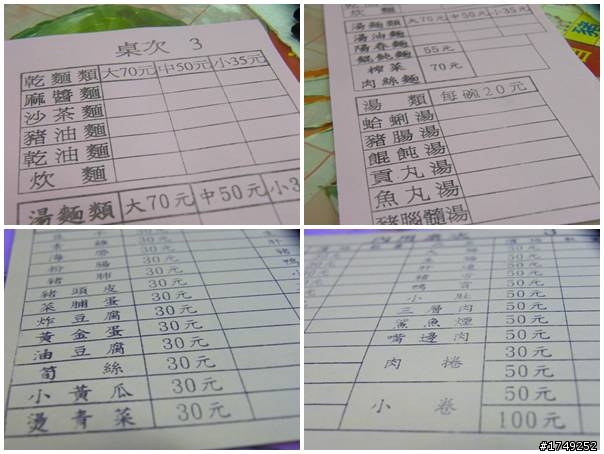 桌次 3
乾麵類 大70元 中50元 小35元
麻醬麵
沙茶麵
豬油麵
乾油麵
炊麵
湯麵類 大70元 中50元 小3
炊麵
湯麵類 大70元 中50元 小35元
湯油麵
陽春麵
餛飩麵 55元
榨菜肉絲麵 70元
湯類 每碗20元
蛤蜊湯
豬腸湯
餛飩湯
貢丸湯
魚丸湯
豬腦髓湯
30元
30元
粉腸 30元
豬肺 30元
豬頭皮 30元
菜脯蛋 30元
炸豆腐 30元
黃金蛋 30元
油豆腐 30元
筍絲 30元
小黃瓜 30元
燙青菜 30元
50元
50元
小肚 50元
三層肉 50元
鯊魚煙 50元
嘴邊肉 50元
肉捲 30元
50元
小卷 50元
100元
#1749252